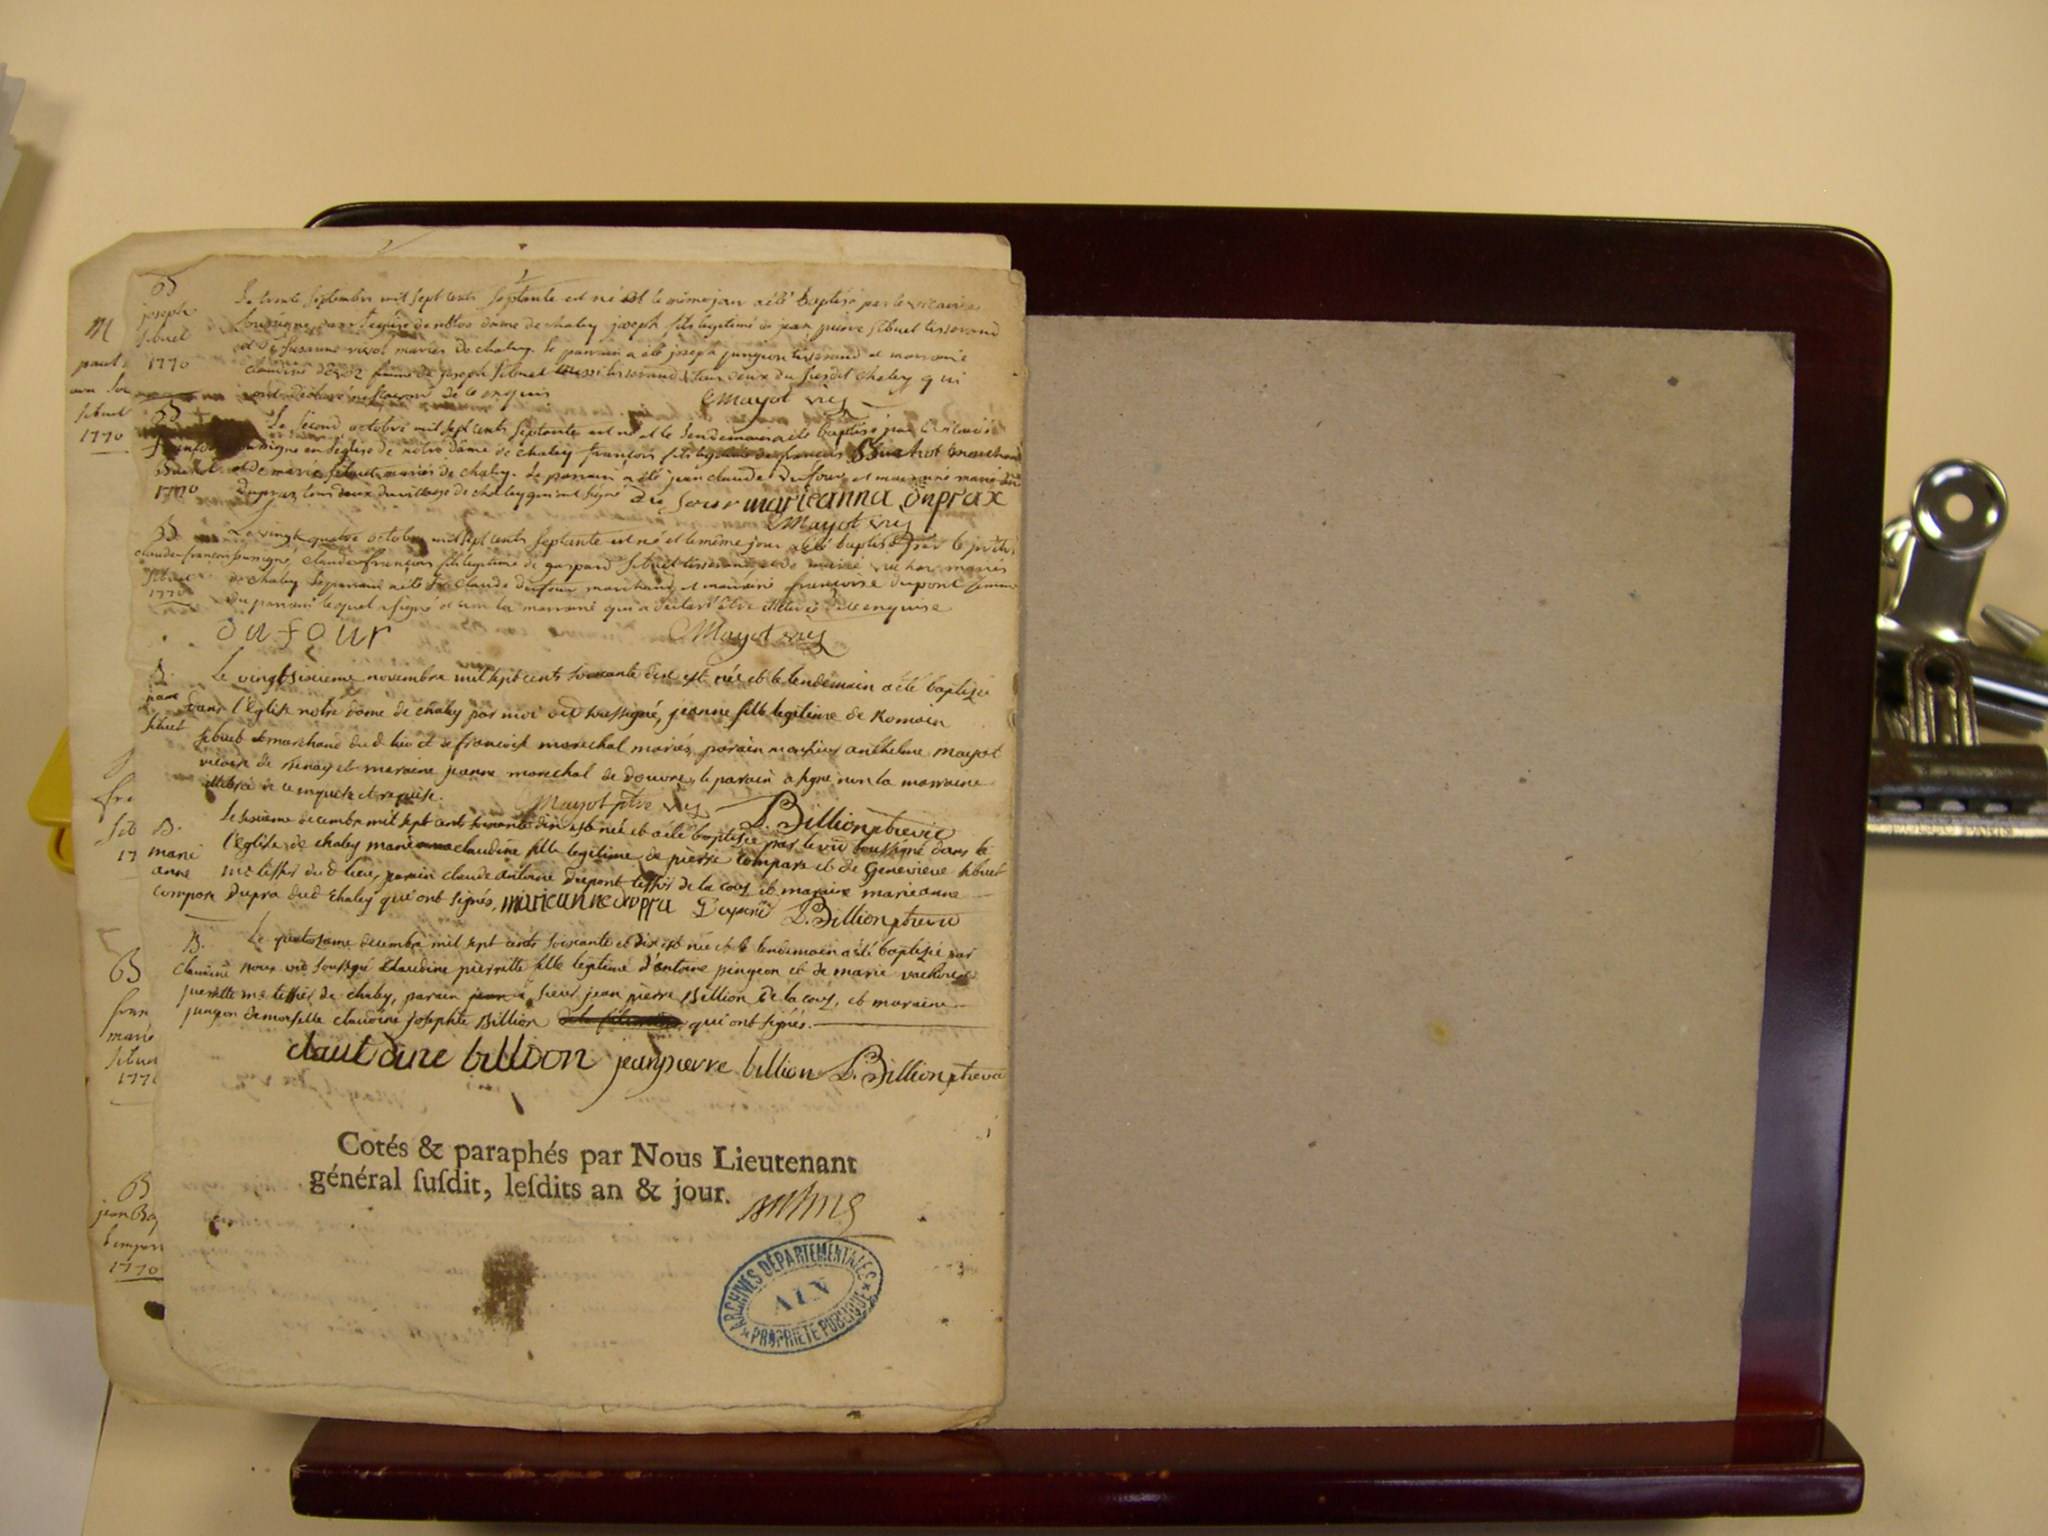 B
joseph
sibuet
1770
Le trente septembre mil sept cents septante est né et le même jour a été baptisé par le vicaire
soussigné dans l'eglise de notre dame de chaley joseph fils legitime de jean pierre sibuet tisserand
et de susanne mariés de chaley. le parrain a été joseph pingeon tisserand et marraine
claudine femme de joseph sibuet tisserand tous deux du susdit chaley qui
ont déclaré ne scavoir de ce enquis
Mayot vic
B
françois
1770
Le second octobre mil sept cents septante est né et le lendemain a été baptisé par le vicaire
soussigné en l'eglise de nôtre dâme de chaley françois fils legitime de françois marchand
et de marie sibuet mariés de chaley. Le parrain a été jean claude Dufour et marraine marie
duprax tous deux du village de chaley qui ont signé Du four marieanna duprax
Mayot vic
B
claude françois
sibuet
1770
Le vingt quatre octobre mil sept cents septante est né et le même jour a été baptisé par le
soussigné, claude françois fils legitime de gaspard sibuet tisserand et de marie mariés
de chaley le parrain a été claude dufour marchand et marraine françoise dupont femme
du parrain lequel a signé et non la marraine qui a déclaré être illiterée de ce enquise
dufour Mayot vic
B.
jane
sibuet
Le vingtsixieme novembre mil sept cents soixante dix est née et le lendemain a été baptizée
dans l'Eglise notre dame de chaley par moi vic soussigné, jeanne fille legitime de Romain
sibuet marchand du d lieu et de francoise marechal mariés, parain monsieur anthelme mayot
vicaire de tenay et maraine jeanne marechal de douvre, le parain a signé non la marraine
illitérée de ce enquise et requise.
Mayot ptre vic D. Billion ptre vic
B.
marie
anne
compare
Le sixieme decembre mil sept cents soixante dix est née et a été baptisée par le vic soussigné dans la
l'eglise de chaley marie claudine fille legitime de pierre compare et de Genevieve sibuet
me tessier du d lieu, parain claude antoine dupont tessier de la cous et maraine marieanne
Dupra dud chaley qui ont signés, marieanne dupra Dupont D. Billion ptre vic
B.
claudine
pierrette
pingeon
Le quatorzieme decembre mil sept cents soixante et dix est née et le lendemain a été baptisée par
nous vic soussigné Claudine pierrette fille legitime d'antoine pingeon et de marie
me tessier de chaley, parain sieur jean pierre Billion de la cous, et maraine
demoiselle claudine josephte Billion qui ont signés.
claudine billion jean pierre billion D. Billion ptre vic
Cotés & paraphés par Nous Lieutenant
général ſuſdit, leſdits an & jour.
ARCHIVES DÉPARTEMENTALES
AIN
PROPRIETE PUBLIQUE
M
sibuet
1770
B
marie
B
1770